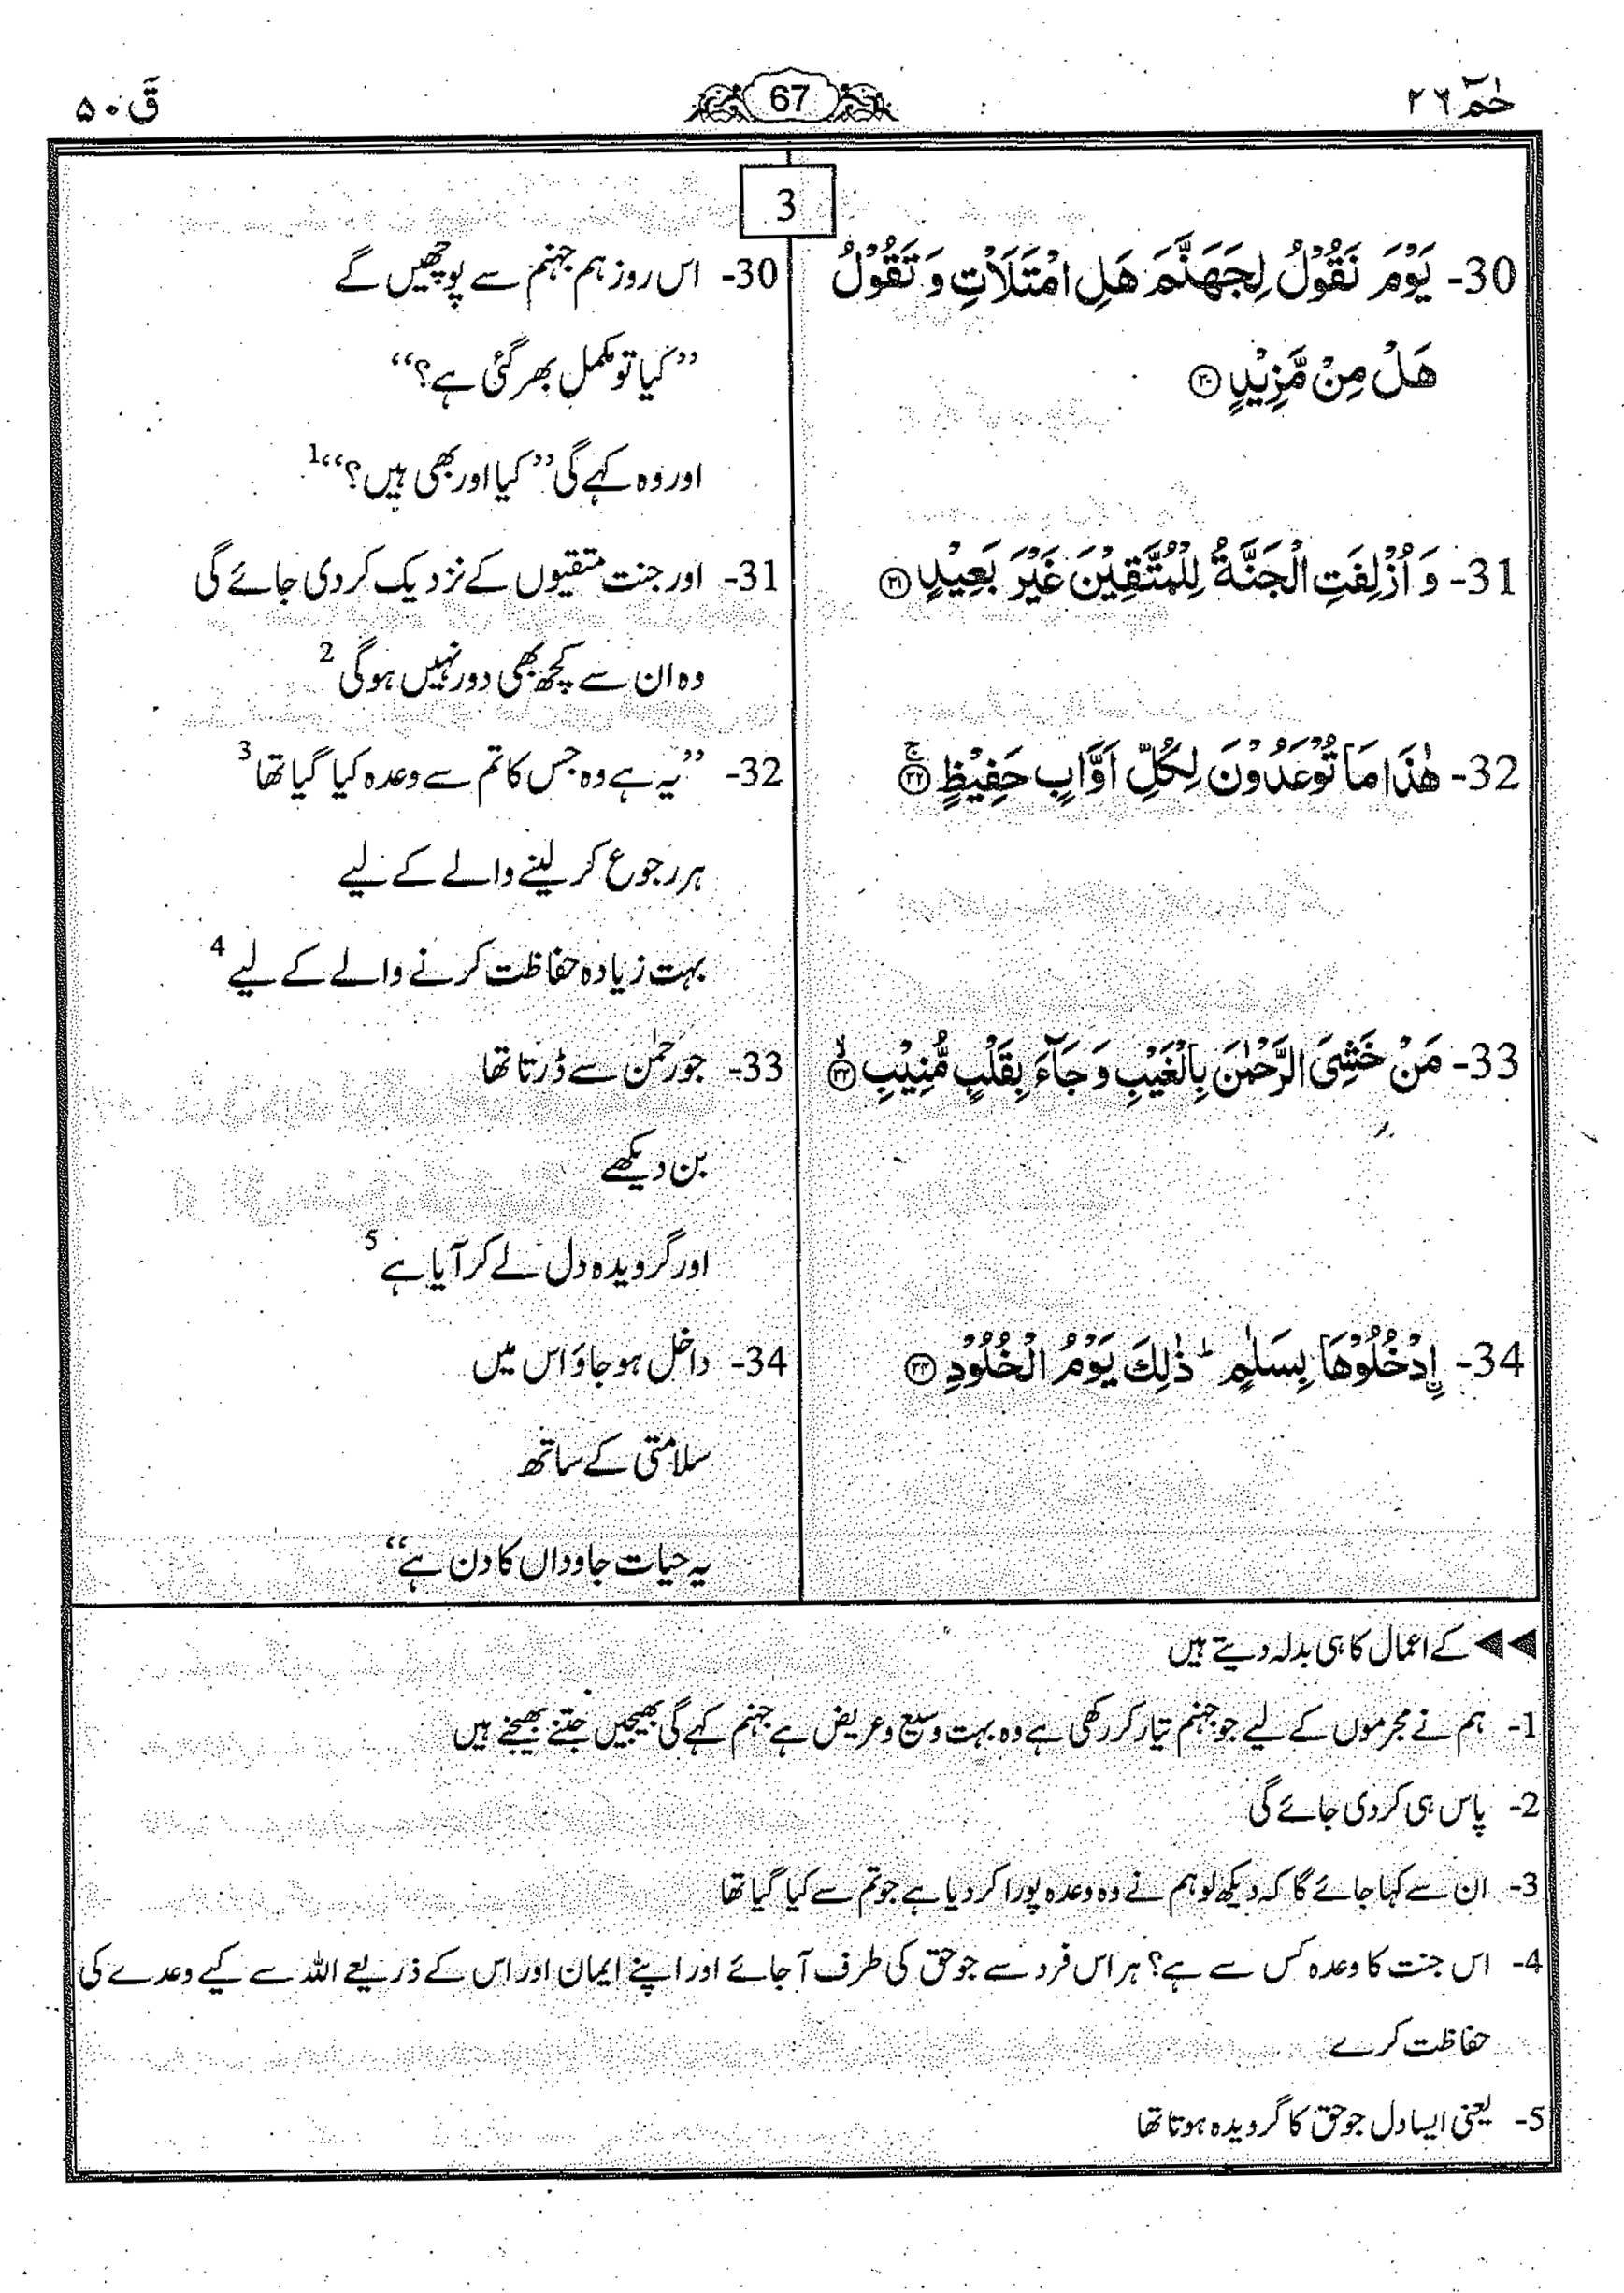 حٰمٓ ۲٦
67
قٓ ۵۰
3
30- یَوْمَ نَقُوْلُ لِجَهَنَّمَ هَلِ امْتَلَاْتِ وَ تَقُوْلُ
هَلْ مِنْ مَّزِیْدٍ ۝۳۰
31- وَ اُزْلِفَتِ الْجَنَّةُ لِلْمُتَّقِیْنَ غَیْرَ بَعِیْدٍ ۝۳۱
32- هٰذَا مَا تُوْعَدُوْنَ لِکُلِّ اَوَّابٍ حَفِیْظٍ ۝۳۲ۚ
33- مَنْ خَشِیَ الرَّحْمٰنَ بِالْغَیْبِ وَ جَآءَ بِقَلْبٍ مُّنِیْبِ ۝۳۳ۙ
34- اِ۟دْخُلُوْهَا بِسَلٰمٍ ؕ ذٰلِكَ یَوْمُ الْخُلُوْدِ ۝۳۴
30- اس روز ہم جہنم سے پوچھیں گے
’’کیا تو مکمل بھر گئی ہے؟‘‘
اور وہ کہے گی ’’کیا اور بھی ہیں؟‘‘1
31- اور جنت متقیوں کے نزدیک کر دی جائے گی
وہ ان سے کچھ بھی دور نہیں ہوگی 2
32- ’’یہ ہے وہ جس کا تم سے وعدہ کیا گیا تھا 3
ہر رجوع کر لینے والے کے لیے
بہت زیادہ حفاظت کرنے والے کے لیے 4
33- جو رحمٰن سے ڈرتا تھا
بن دیکھے
اور گرویدہ دل لے کر آیا ہے 5
34- داخل ہو جاؤ اس میں
سلامتی کے ساتھ
یہ حیات جاوداں کا دن ہے‘‘
◀◀ کے اعمال کا ہی بدلہ دیتے ہیں
1- ہم نے مجرموں کے لیے جو جہنم تیار کر رکھی ہے وہ بہت وسیع و عریض ہے جہنم کہے گی بھیجیں جتنے بھیجنے ہیں
2- پاس ہی کر دی جائے گی
3- ان سے کہا جائے گا کہ دیکھ لو ہم نے وہ وعدہ پورا کر دیا ہے جو تم سے کیا گیا تھا
4- اس جنت کا وعدہ کس سے ہے؟ ہر اس فرد سے جو حق کی طرف آ جائے اور اپنے ایمان اور اس کے ذریعے اللہ سے کیے وعدے کی
حفاظت کرے
5- یعنی ایسا دل جو حق کا گرویدہ ہوتا تھا